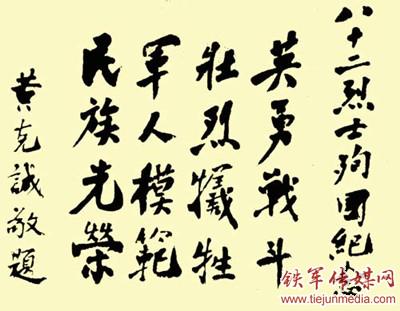 八十二烈士殉国纪念
英勇战斗
壮烈犠牲
军人模範
民族光荣
黄克誠敬題
铁军传媒网
www.tiejunmedia.com